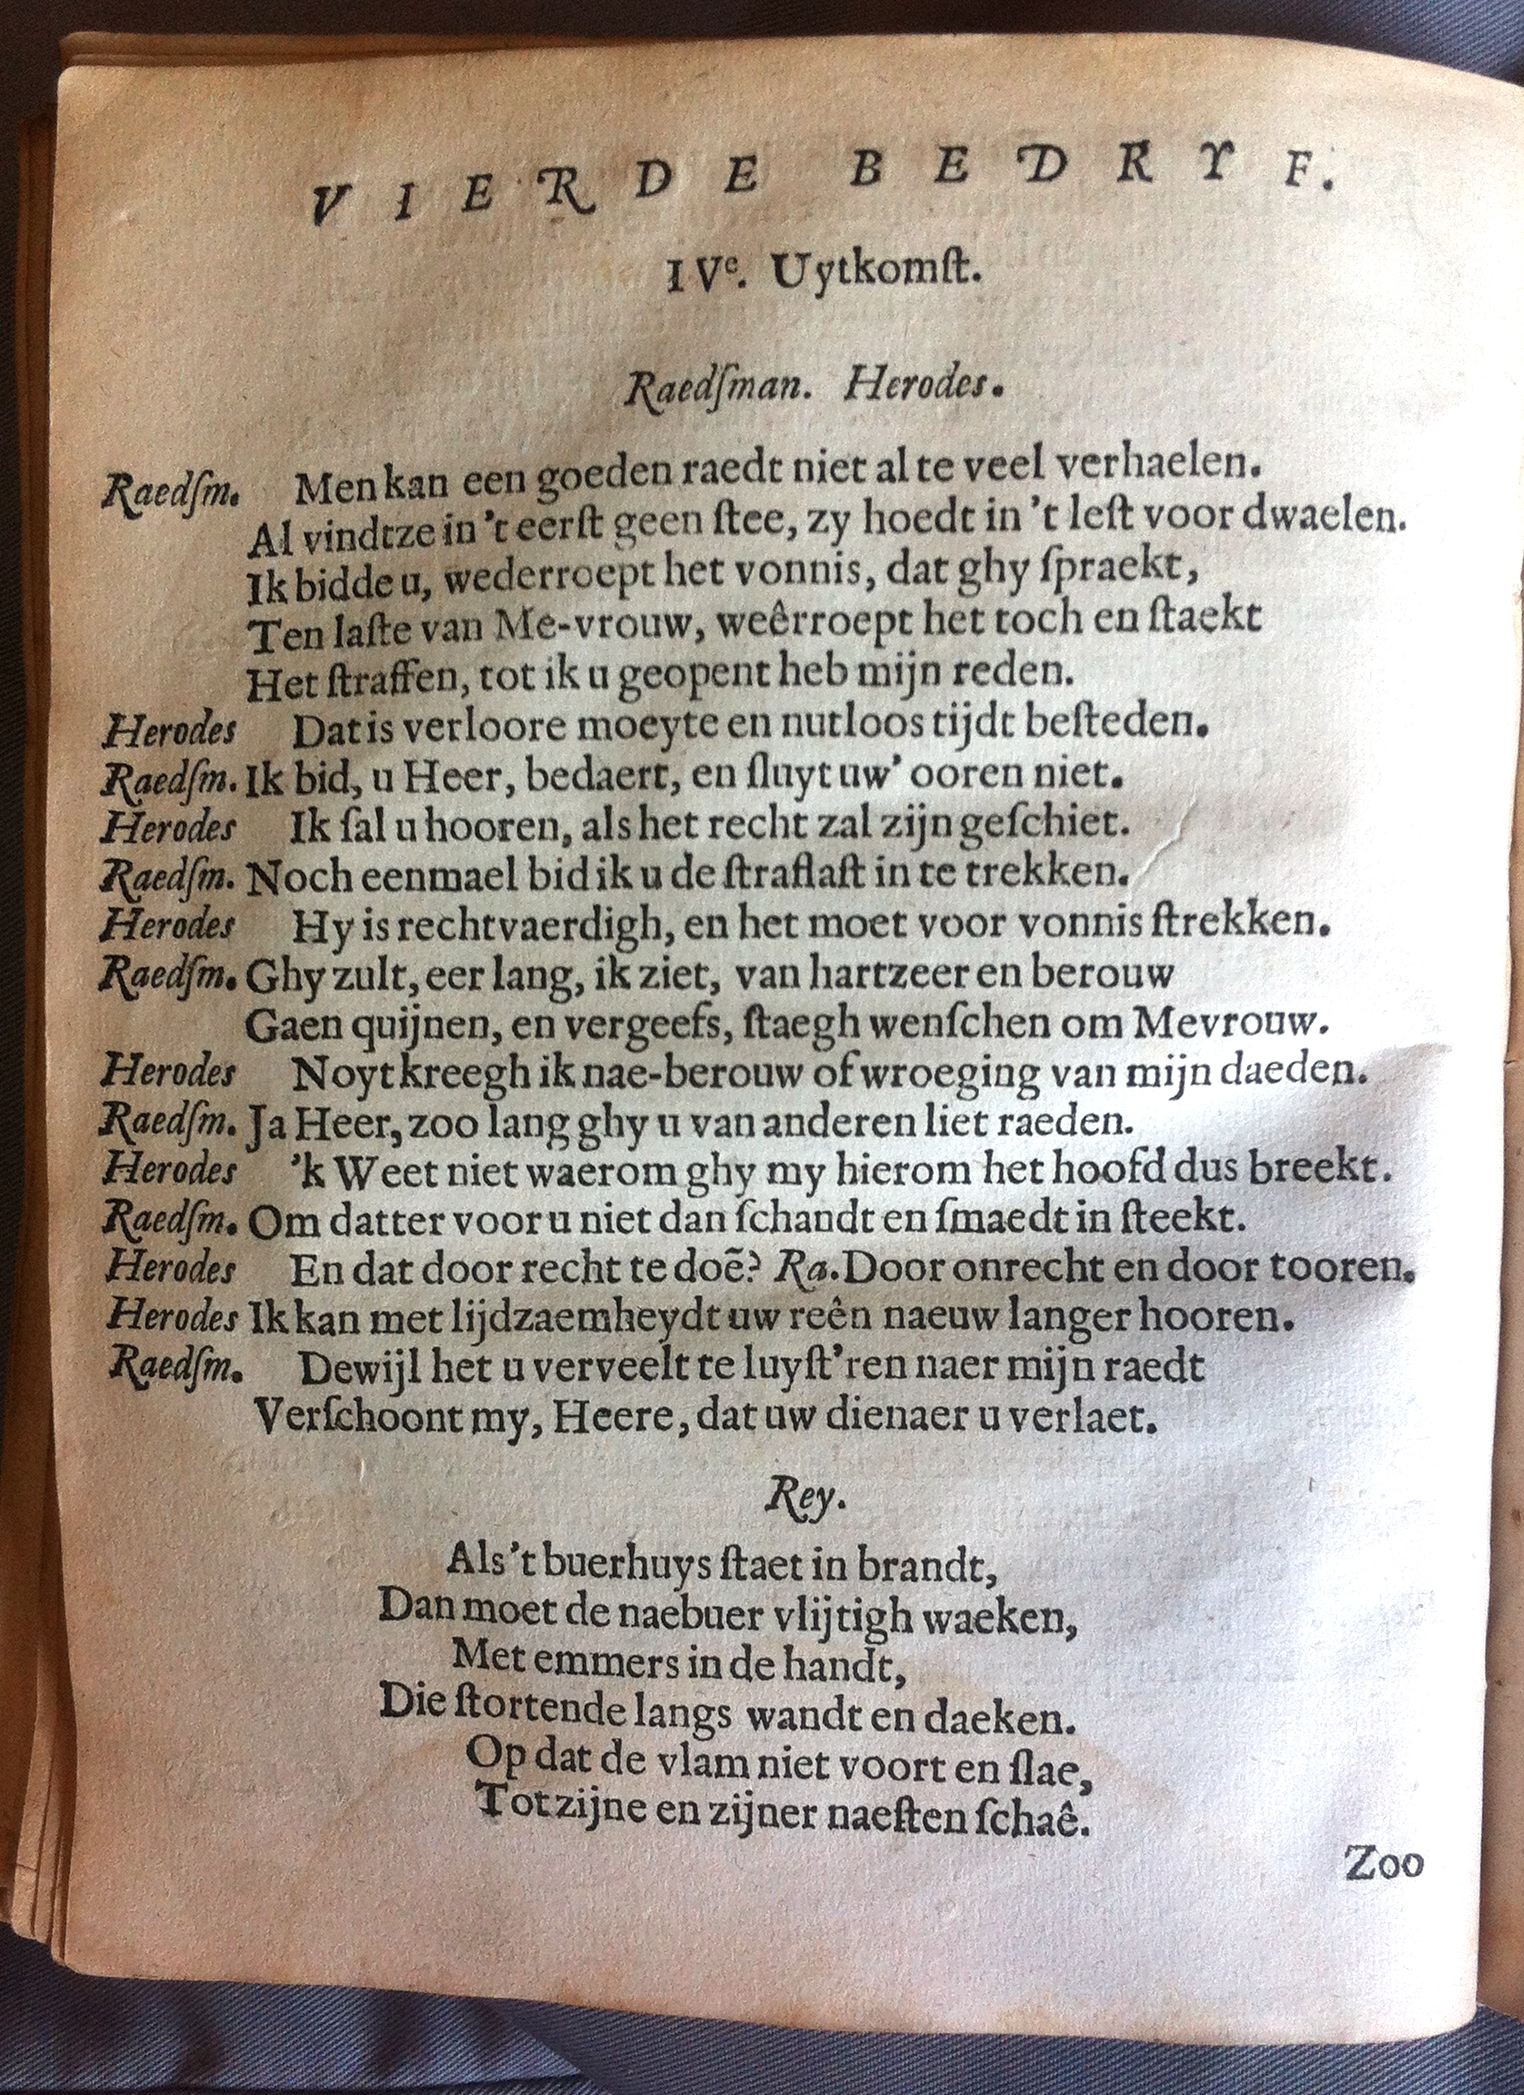 VIERDE BEDRYF.
IVe. Uytkomſt.
Raedſman. Herodes.
Raedſm. Men kan een goeden raedt niet al te veel verhaelen.
Al vindtze in 't eerſt geen ſtee, zy hoedt in 't leſt voor dwaelen.
Ik bidde u, wederroept het vonnis, dat ghy ſpraekt,
Ten laſte van Me-vrouw, weêrroept het toch en ſtaekt
Het ſtraffen, tot ik u geopent heb mijn reden.
Herodes Dat is verloore moeyte en nutloos tijdt beſteden.
Raedſm. Ik bid, u Heer, bedaert, en ſluyt uw' ooren niet.
Herodes Ik ſal u hooren, als het recht zal zijn geſchiet.
Raedſm. Noch eenmael bid ik u de ſtraflaſt in te trekken.
Herodes Hy is rechtvaerdigh, en het moet voor vonnis ſtrekken.
Raedſm. Ghy zult, eer lang, ik ziet, van hartzeer en berouw
Gaen quijnen, en vergeefs, ſtaegh wenſchen om Mevrouw.
Herodes Noyt kreegh ik nae-berouw of wroeging van mijn daeden.
Raedſm. Ja Heer, zoo lang ghy u van anderen liet raeden.
Herodes 'k Weet niet waerom ghy my hierom het hoofd dus breekt.
Raedſm. Om datter voor u niet dan ſchandt en ſmaedt in ſteekt.
Herodes En dat door recht te doẽ? Ra. Door onrecht en door tooren.
Herodes Ik kan met lijdzaemheydt uw reên naeuw langer hooren.
Raedſm. Dewijl het u verveelt te luyſt'ren naer mijn raedt
Verſchoont my, Heere, dat uw dienaer u verlaet.
Rey.
Als 't buerhuys ſtaet in brandt,
Dan moet de naebuer vlijtigh waeken,
Met emmers in de handt,
Die ſtortende langs wandt en daeken.
Op dat de vlam niet voort en ſlae,
Tot zijne en zijner naeſten ſchaê.
Zoo